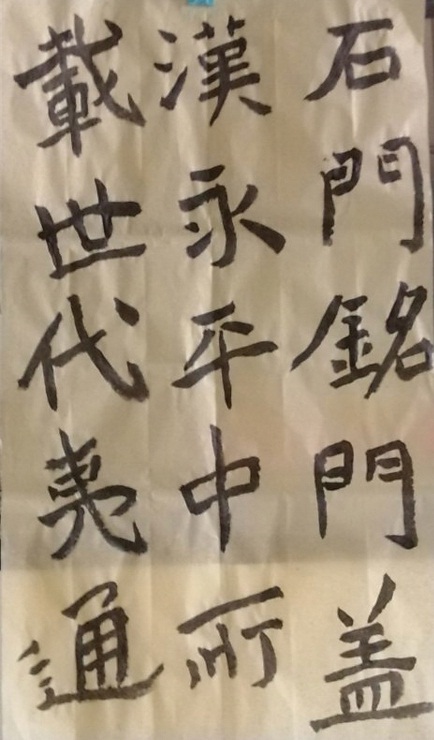 石門銘門盖
漢永平中所
載世代夷通